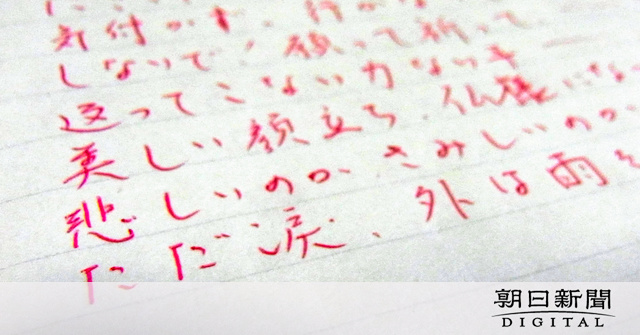 気付かず、行か
しないで! 願って祈って
返ってこない力ない手
美しい顔立ち、仏様にな
悲しいのかさみしいのか
ただ涙、外は雨
朝日新聞
DIGITAL